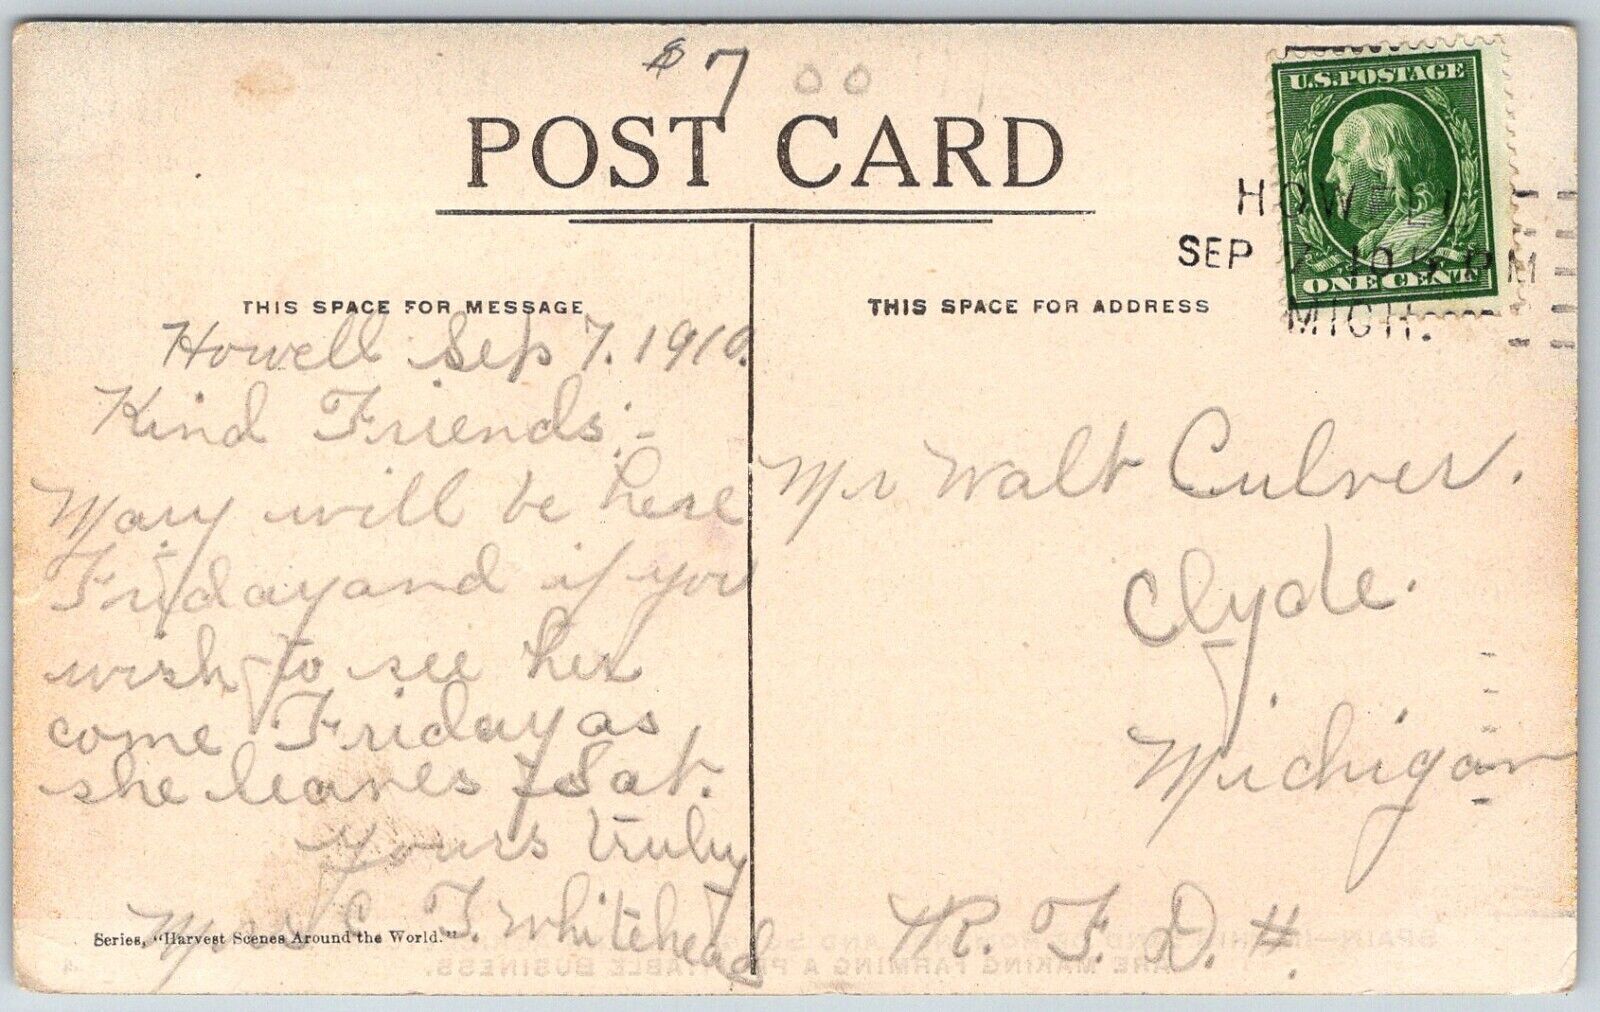 $7 00
POST CARD
U.S. POSTAGE
ONE CENT
HOWELL
SEP 7 10 PM
MICH.
THIS SPACE FOR MESSAGE
Howell Sep 7. 1910.
Kind Friends:-
Mary will be here
Friday and if you
wish to see her
come Friday as
she leaves Sat.
Yours truly
Mrs C. F. Whitehead
Series, "Harvest Scenes Around the World."
THIS SPACE FOR ADDRESS
Mr Walt Culver.
Clyde.
Michigan
R. F. D. #.